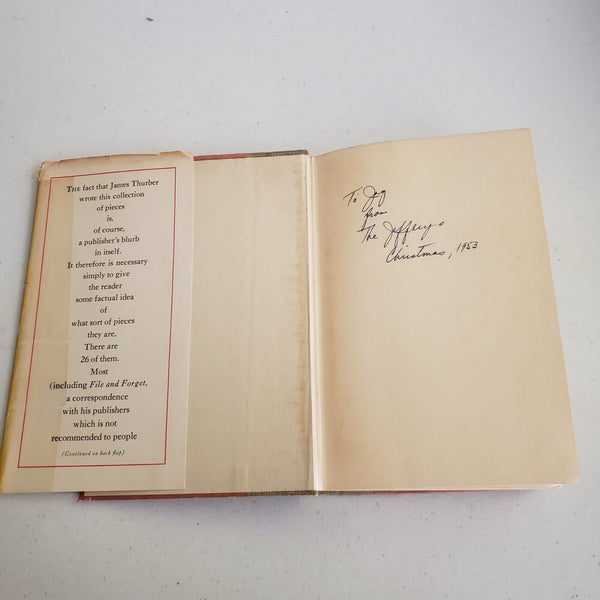 THE fact that James Thurber
wrote this collection
of pieces
is,
of course,
a publisher's blurb
in itself.
It therefore is necessary
simply to give
the reader
some factual idea
of
what sort of pieces
they are.
There are
26 of them.
Most
(including File and Forget,
a correspondence
with his publishers
which is not
recommended to people
(Continued on back flap)
To Joy
from
The Jefferys
Christmas, 1953